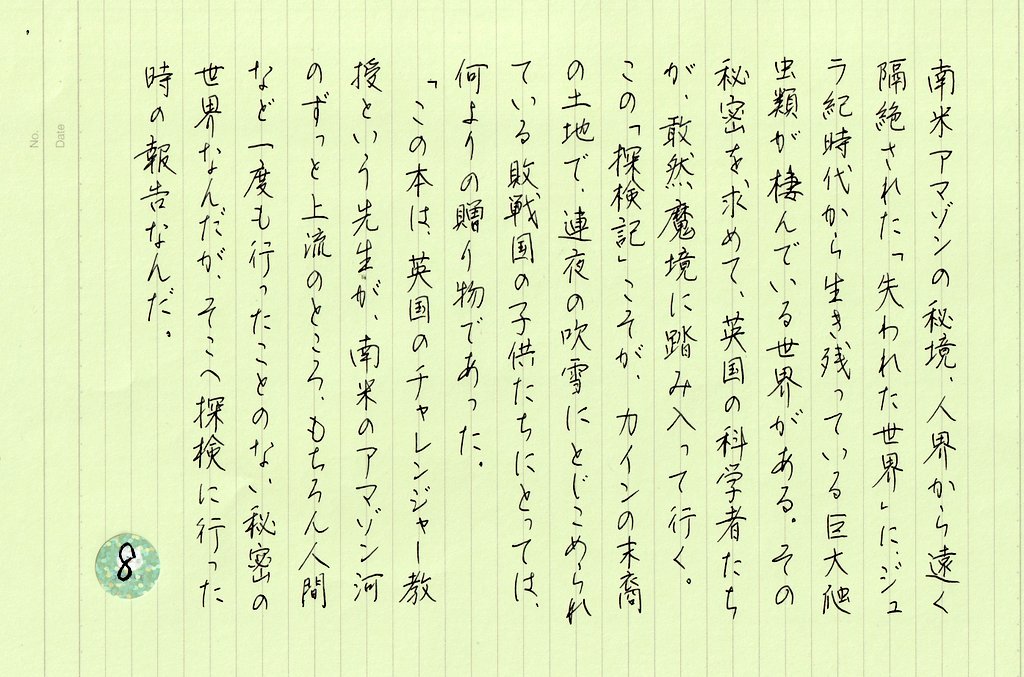 南米アマゾンの秘境、人界から遠く
隔絶された「失われた世界」に、ジュ
ラ紀時代から生き残っている巨大爬
虫類が棲んでいる世界がある。その
秘密を求めて、英国の科学者たち
が、敢然魔境に踏み入って行く。
この「探検記」こそが、カインの末裔
の土地で、連夜の吹雪にとじこめられ
ている敗戦国の子供たちにとっては、
何よりの贈り物であった。
「この本は、英国のチャレンジャー教
授という先生が、南米のアマゾン河
のずっと上流のところ、もちろん人間
など一度も行ったことのない秘密の
世界なんだが、そこへ探検に行った
時の報告なんだ。
8
No.
Date